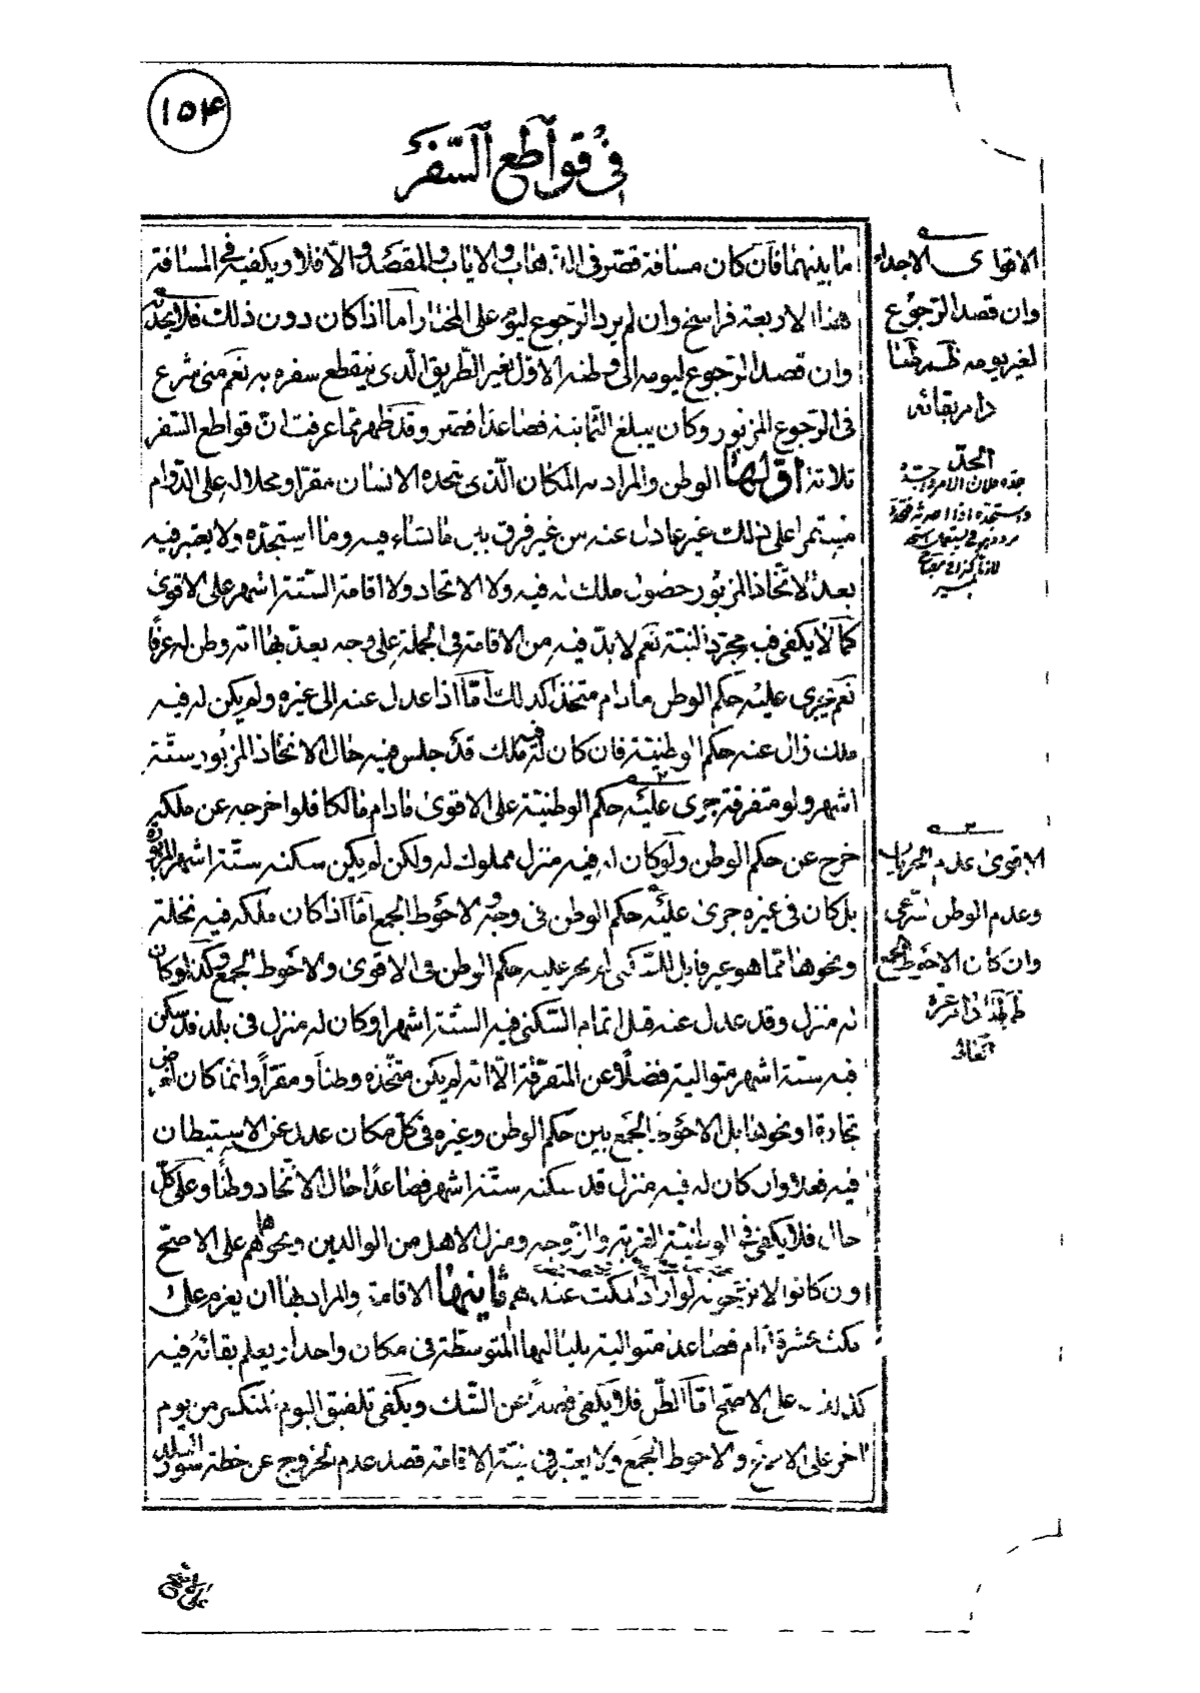 ١٥٤
في قواطع السفر
ما بينهما فان كان مسافة قصر في الذهاب والاياب والمقصد والا فلا ويكفيه في المسافة
هذا الاربعة فراسخ وان لم يرد الرجوع ليومه على المختار واما اذا كان دون ذلك فلا يجديه
وان قصد الرجوع ليومه الى وطنه الاول لغير الطريق الذي ينقطع سفره به نعم متى شرع
في الرجوع المزبور وكان يبلغ الثمانية فصاعدا قصر وقد ظهر مما عرفت ان قواطع السفر
ثلاثة اولها الوطن والمراد به المكان الذي يتخذه الانسان مقرا ومحلا له على الدوام
مستمرا على ذلك غير عادل عنه من غير فرق بين ما نشاء فيه وما استجده ولا يعتبر فيه
بعد الاتخاذ المزبور حصول ملك له فيه ولا الاتحاد ولا اقامة الستة اشهر على الاقوى
كما لا يكفي فيه مجرد النية نعم لا بد فيه من الاقامة في الجملة على وجه يعد بها انه وطن له عرفا
نعم يجرى عليه حكم الوطن مادام متخذا كذلك اما اذا عدل عنه الى غيره ولم يكن له فيه
ملك زال عنه حكم الوطنية فان كان له فيه ملك قد جلس فيه حال الاتخاذ المزبور ستة
اشهر ولو متفرقة جرى عليه حكم الوطنية على الاقوى مادام مالكا فلو اخرجه عن ملكه
خرج عن حكم الوطن ولو كان له فيه منزل مملوك له ولكن لم يكن سكنه ستة اشهر المزبورة
بل كان في غيره جرى عليه حكم الوطن في وجه والاحوط الجمع اما اذا كان ملكه فيه نخلة
ونحوها مما هو غير قابل للسكنى لم يجر عليه حكم الوطن في الاقوى والاحوط الجمع وكذا لو كان
له منزل وقد عدل عنه قبل اتمام السكنى فيه الستة اشهر او كان له منزل في بلد قد سكن
فيه ستة اشهر متوالية فضلا عن المتفرقة الا انه لم يكن متخذه وطنا ومقرا وانما كان لغرض
تجارة او نحوها بل الاحوط الجمع بين حكم الوطن وغيره في كل مكان عدل عن الاستيطان
فيه فعلا وان كان له فيه منزل قد سكنه ستة اشهر فصاعدا حال الاتخاد وطنا وعلى كل
حال فلا يكفي في الوطنية القرية والزوجه ومنزل الاهل من الوالدين ونحوهما على الاصح
وان كانوا لا يزعجونه لو اراد المكث عندهم ثانيها الاقامة والمراد بها ان يعزم على
مكث عشرة ايام فصاعدا متوالية بلياليها المتوسطة في مكان واحد او يعلم بقائه فيه
كذلك على الاصح اما الظن فلا يكفي فضلا عن الشك ويكفي تلفيق اليوم المنكسر من يوم
اخر على الاصح والاحوط الجمع ولا يعتبر في نية الاقامة قصد عدم الخروج عن خطة سور البلد
الاقوى الاجداء
وان قصد الرجوع
لغير يومه
دام بقائه
الاقوى عدم
وعدم الوطن شرعى
وان كان الاحوط الجمع